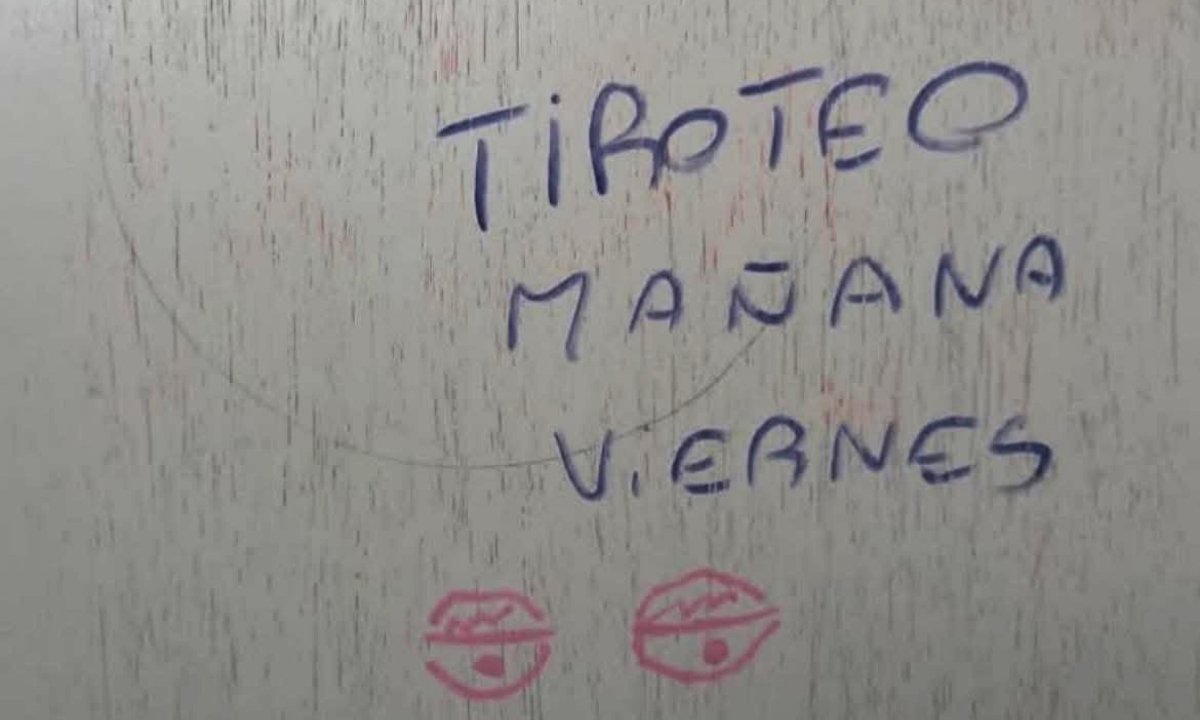 TIROTEO
MAÑANA
VIERNES